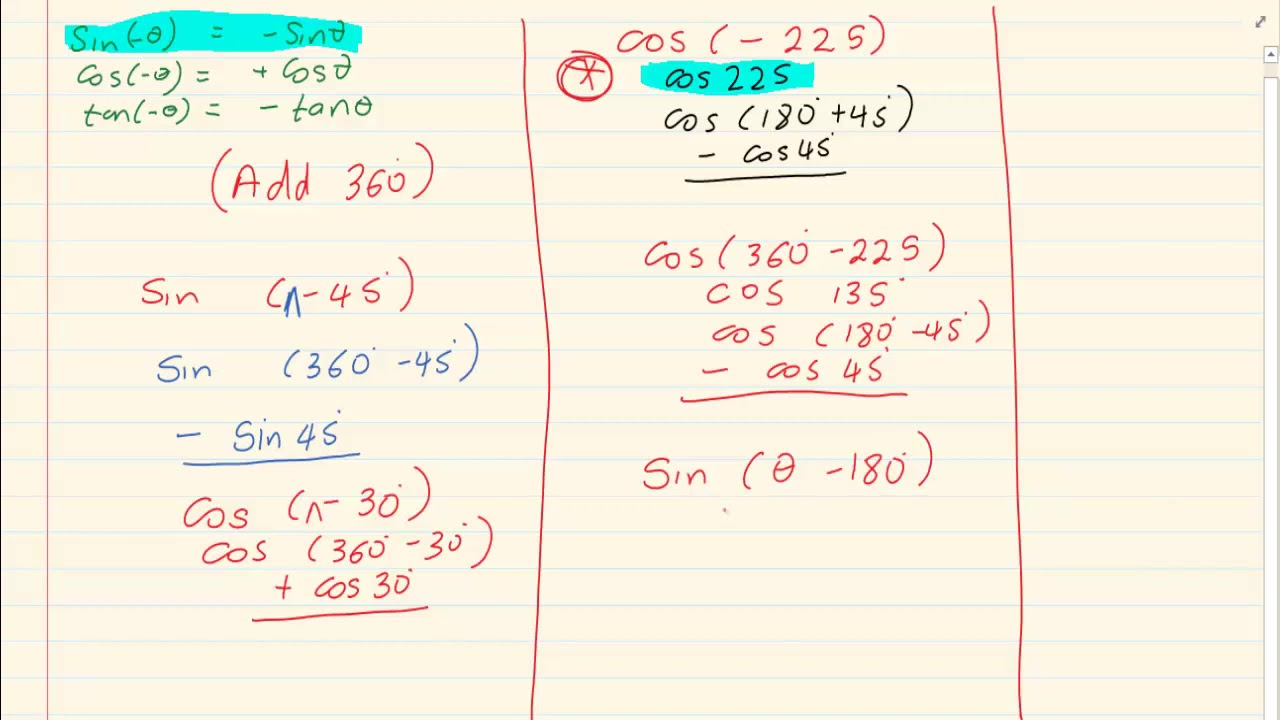 sin(-θ) = - sinθ
cos(-θ) = + cosθ
tan(-θ) = - tanθ
(Add 360°)
sin (∧-45°)
sin (360° -45°)
- sin 45°
cos (∧- 30°)
cos (360° -30°)
+ cos 30°
cos (- 225)
*
cos 225
cos (180° +45°)
- cos 45°
cos (360° -225)
cos 135°
cos (180° -45°)
- cos 45°
sin (θ -180°)